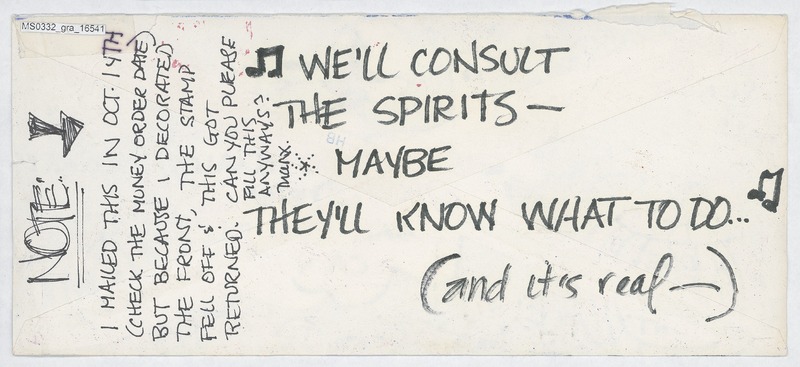 MS0332_gra_16541
NOTE:
I MAILED THIS IN OCT. 14TH
(CHECK THE MONEY ORDER DATE)
BUT BECAUSE I DECORATED
THE FRONT, THE STAMP
FELL OFF & THIS GOT
RETURNED. CAN YOU PLEASE
FILL THIS
ANYWAYS?
Thanx.
♫ WE'LL CONSULT
THE SPIRITS—
MAYBE
THEY'LL KNOW WHAT TO DO... ♫
(and it's real—)